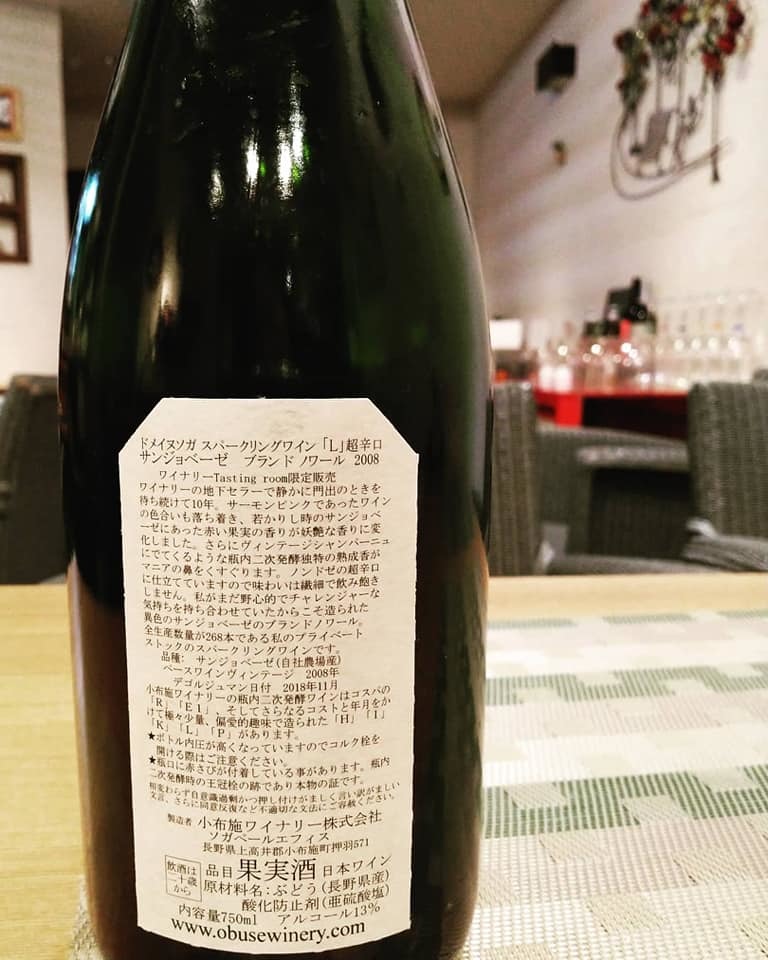 ドメイヌソガ スパークリングワイン「L」超辛口
サンジョベーゼ ブランド ノワール 2008
ワイナリーTasting room限定販売
ワイナリーの地下セラーで静かに門出のときを
待ち続けて10年。サーモンピンクであったワイン
の色合いも落ち着き、若かりし時のサンジョベ
ーゼにあった赤い果実の香りが妖艶な香りに変
化しました。さらにヴィンテージシャンパーニュ
にでてくるような瓶内二次発酵独特の熟成香が
マニアの鼻をくすぐります。ノンドゼの超辛口
に仕立てていますので味わいは繊細で飲み飽き
しません。私がまだ野心的でチャレンジャーな
気持ちを持ち合わせていたからこそ造られた
異色のサンジョベーゼのブランドノワール。
全生産数量が268本である私のプライベート
ストックのスパークリングワインです。
品種: サンジョベーゼ(自社農場産)
ベースワインヴィンテージ 2008年
デゴルジュマン日付 2018年11月
小布施ワイナリーの瓶内二次発酵ワインはコスパの
「R」「E1」、そしてさらなるコストと年月をか
けて極々少量、偏愛的趣味で造られた「H」「I」
「K」「L」「P」があります。
★ボトル内圧が高くなっていますのでコルク栓を
開ける際はご注意ください。
★瓶口に赤さびが付着している事があります。瓶内
二次発酵時の王冠栓の跡であり本物の証です。
相変わらず自意識過剰かつ押し付けがましく言い訳がましい
文言、さらに同意反復など不適切な文法にご容赦ください。
製造者 小布施ワイナリー株式会社
ソガペールエフィス
長野県上高井郡小布施町押羽571
飲酒は
二十歳
から
品目 果実酒 日本ワイン
原材料名:ぶどう(長野県産)
酸化防止剤(亜硫酸塩)
内容量750ml アルコール13%
www.obusewinery.com